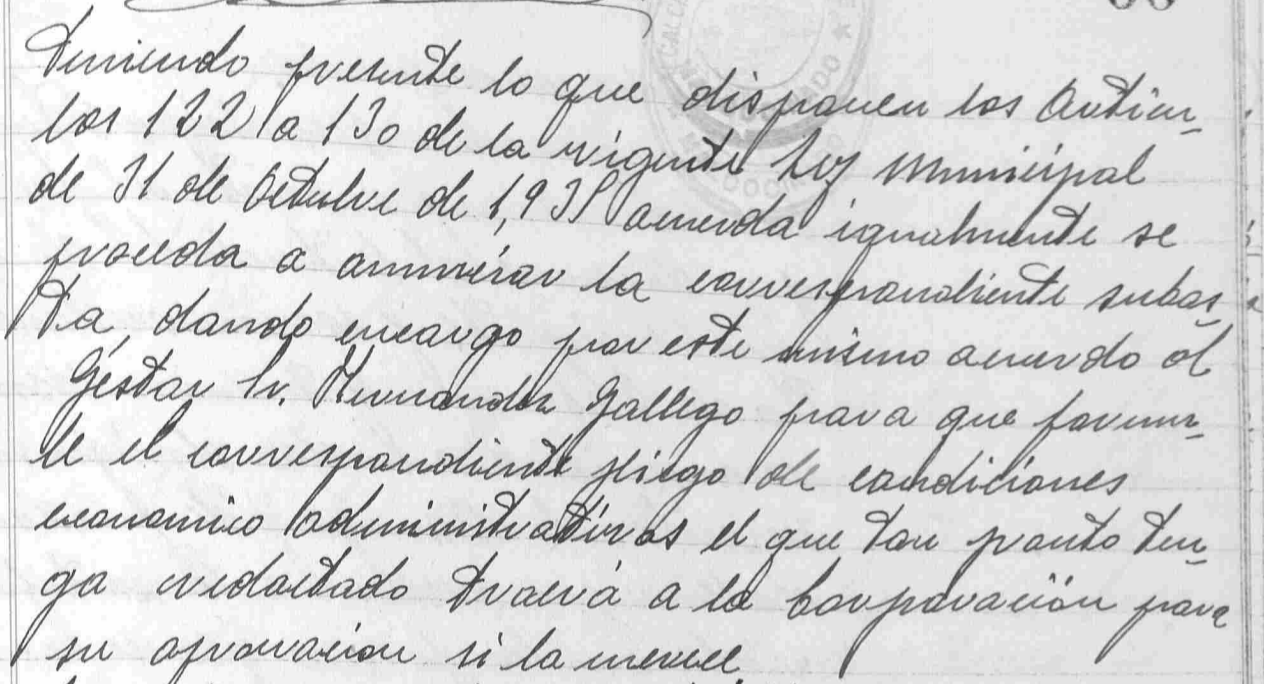 Teniendo presente lo que disponen los Articu-
los 122 a 130 de la vigente Ley Municipal
de 31 de Octubre de 1,935 acuerda igualmente se
proceda a anunciar la correspondiente subas-
ta, dando encargo por este mismo acuerdo al
Gestor Sr. Hernandez Gallego para que formu-
le el correspondiente pliego de condiciones
economico administrativas el que tan pronto ten-
ga redactado traerá a la Corporación para
su aprovacion si la merece